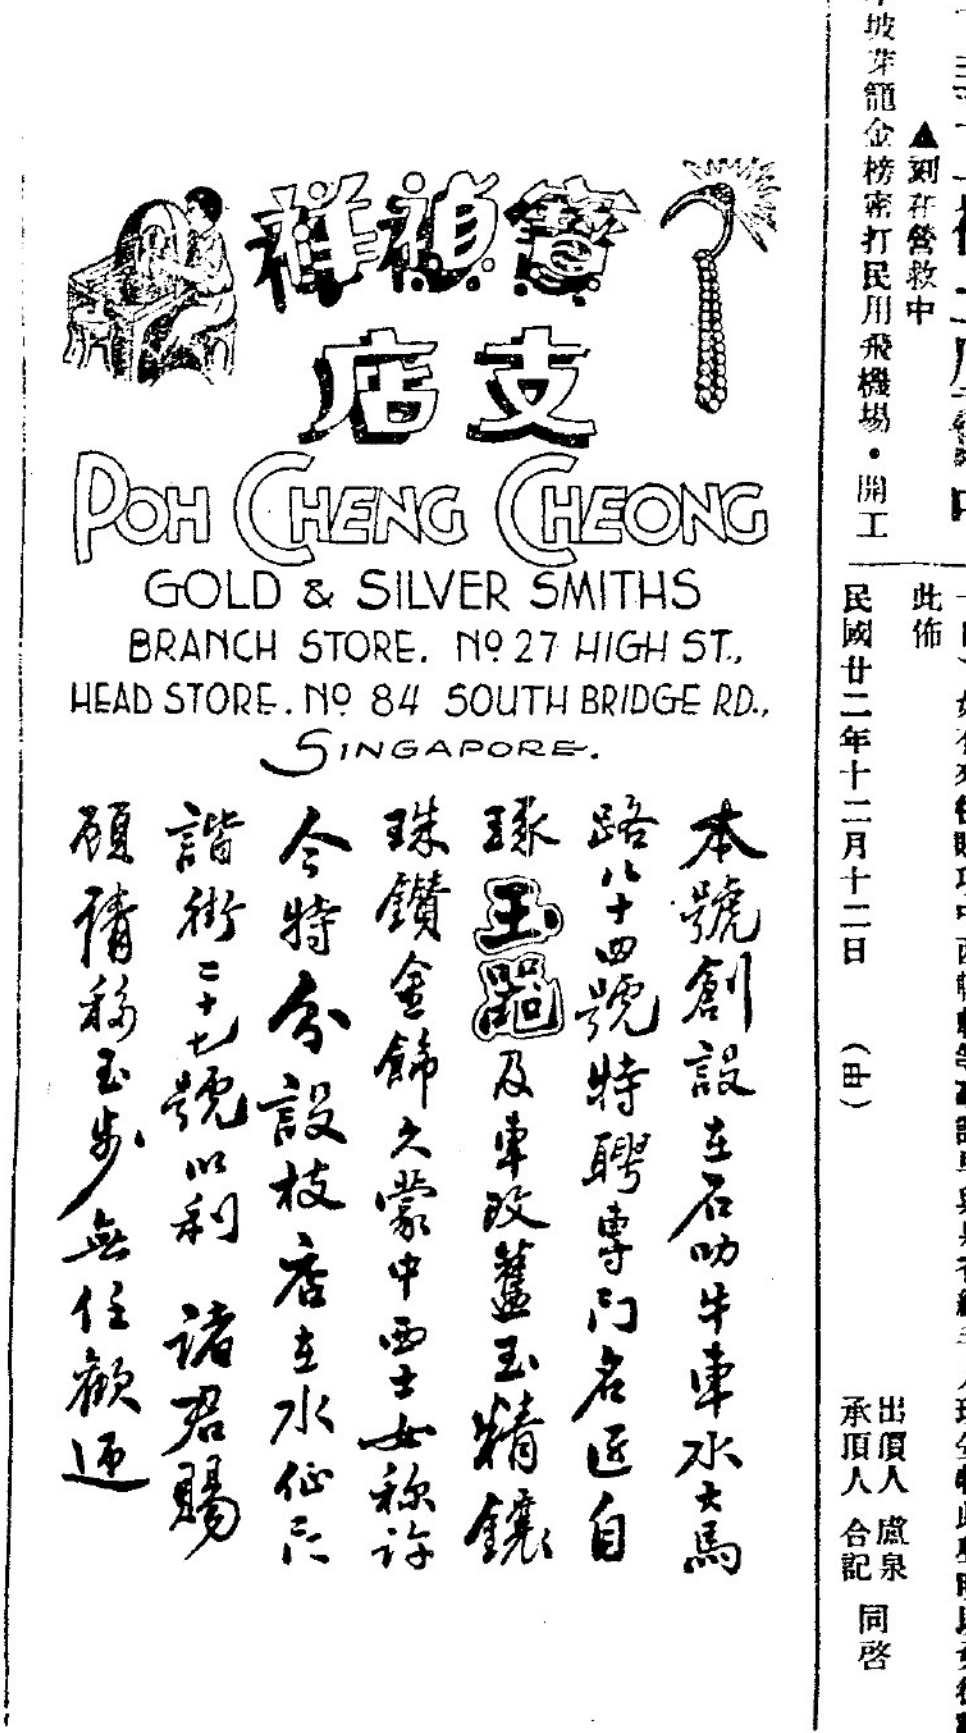 寶禎祥
支店
POH CHENG CHEONG
GOLD & SILVER SMITHS
BRANCH STORE. No 27 HIGH ST.,
HEAD STORE. No 84 SOUTH BRIDGE RD.,
SINGAPORE.
本號創設在石叻牛車水大馬
路八十四號特聘專門名匠自
琢玉器及車改舊玉精鑲
珠鑽金飾久蒙中西士女称許
今特分設枝店在水仙门
諧街二十七號以利 諸君賜
顧請移玉步無任歡迎
▲刻在營救中
坡芽籠金榜密打民用飛機場・開工
此佈
民國廿二年十二月十二日
出頂人 盧泉
承頂人 合記
同啓